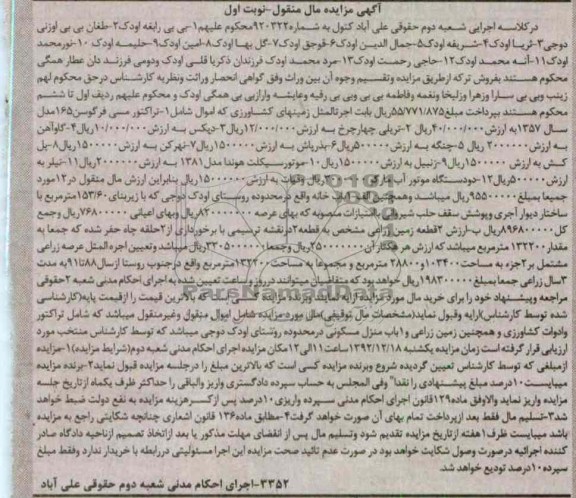 آگهی مزایده مال منقول-نوبت اول
درکلاسه اجرایی شعبه دوم حقوقی علی آباد کتول به شماره۹۲۰۳۲۲محکوم علیهم۱-بی بی رابعه اودک۲-طلعان بی بی اوزنی
دوجی۳-ثریا اودک۴-شریفه اودک۵-جمال الدین اودک۶-قوجق اودک۷-گل بها اودک۸-امین اودک۹-حلیمه اودک ۱۰-نورمحمد
اودک۱۱-آنه محمد اودک۱۲-حاجی رحمت اودک۱۳-مرد محمد اودک فرزندان ذکریا قلی اودک ودومی فرزند دان عطار همگی
محکوم هستند بفروش ترکه ازطریق مزایده وتقسیم وجوه آن بین وراث وفق گواهی انحصار وراثت ونظریه کارشناس درحق محکوم لهم
زینب وبی بی سارا وزهرا وزلیخا ونغمه وفاطمه بی بی وبی بی رقیه وعایشه وارازبی بی همگی اودک و محکوم علیهم ردیف اول تا ششم
محکوم هستند بپرداخت مبلغ۵۵/۷۷۱/۸۷۵ریال بابت اجرتالمثل زمینهای کشاورزی که اموال شامل۱-تراکتور مسی فرگوسن۱۶۵مدل
سال ۱۳۵۷به ارزش۴۰/۰۰۰/۰۰۰ریال ۲-تریلی چهارچرخ به ارزش۱۲/۰۰۰/۰۰۰ریال۳-دیکس به ارزش۱۰/۰۰۰/۰۰۰ریال۴-گاوآهن
به ارزش ۲۰۰۰۰۰۰ ریال ۵-چنگه به ارزش۵۰۰۰۰۰۰ریال۶-بذرپاش به ارزش۱۵۰۰۰۰۰ریال۷-نهرکن به ارزش۱۵۰۰۰۰۰ریال۸-پل
کش به ارزش ۱۵۰۰۰۰۰ریال۹-زنبیل به ارزش۱۵۰۰۰۰۰ریال۱۰-موتورسیکلت هوندا مدل۱۳۸۱ به ارزش۲۰۰۰۰۰۰ریال۱۱-تیلر به
ارزش۵۰۰۰۰۰ریال۱۲-دودستگاه موتور آب
۱۵۰۰۰۰۰ریال بنابراین ارزش مال منقول در۱۲مورد
جمیعا بمبلغ۹۵۵۰۰۰۰۰ریال میباشد وهمچنین
خانه واقع درمحدوده روستای اودک دوجی که با زیربنای۱۵۳/۶۰مترمربع با
ساختار دیوار آجری وپوشش سقف حلب شیروانی باامتیازات منصوبه که بهای عرصه ۸۲۰۰۰۰۰۰ریال وبهای اعیانی ۷۶۸۰۰۰۰ریال وجمع
کل ۸۹۶۸۰۰۰۰ریال ب-ارزش ۲قطعه زمین زراعی مشخص به قطعه۲درنقشه ترسیمی با برخورداری از۲حلقه چاه حفر شده که جمعا به
مقدار ۱۳۲۲۰۰ مترمربع میباشد که ارزش هر هکتار آن۲۵۰۰۰۰۰۰۰ریال وجمعا ۳۳۰۵۰۰۰۰۰۰ریال میباشد وتعیین اجره المثل عرصه زراعی
مشتمل بر۲جزء به مساحت۱۰۳۴۰۰و۲۸۸۰۰ مترمربع و مجموعا به مساحت۱۳۲۲۰۰مترمربع واقع درجنوب روستا ازسال۸۸تا۹۱به مدت
۳سال زراعی جمعا بمبلغ ۱۹۸۳۰۰۰۰۰ریال خواهد بود که متقاضیان میتوانند درروز وساعت تعیین شده به اجرای احکام مدنی شعبه ۲حقوقی
مراجعه وپیشنهاد خود را برای خرید مال مورد مزایده
بالاترین قیمت را ازقیمت پایه(کارشناسی
شده توسط کارشناس)ارایه وقبول نماید(مشخصات مال توقیفی)مال مورد مزایده شامل اموال منقول وغیرمنقول میباشد که شامل تراکتور
وادوات کشاورزی و همچنین زمین زراعی و۱باب منزل مسکونی درمحدوده روستای اودک دوجی میباشد که توسط کارشناس منتخب مورد
ارزیابی قرار گرفته است زمان مزایده یکشنبه ۱۳۹۲/۱۲/۱۸ ساعت۱۱الی۱۲مکان مزایده اجرای احکام مدنی شعبه دوم(شرایط مزایده)۱-مزایده
ازمبلغی که توسط کارشناس تعیین گردیده شروع وبرنده مزایده کسی است که بالاترین مبلغ را درجلسه مزایده قبول نماید۲-برنده مزایده
میبایست۱۰درصد مبلغ پیشنهادی را نقدا" وفی المجلس به حساب سپرده دادگستری واریز والباقی را حداکثر ظرف یکماه ازتاریخ جلسه
مزایده واریز نماید والاوفق ماده۱۲۹قانون اجرای احکام مدنی سپرده واریزی۱۰درصد پس ازکسرهزینه مزایده به نفع دولت ضبط خواهد
شد۳-تسلیم مال فقط بعد ازپرداخت تمام بهای آن صورت خواهد گرفت۴-مطابق ماده۱۳۶ قانون اشعاری چنانچه شکایتی راجع به مزایده
باشد میبایست ظرف۱هفته ازتاریخ مزایده تقدیم شود وتسلیم مال پس از انقضای مهلت مذکور یا بعد ازاتخاذ تصمیم ازناحیه دادگاه صادر
کننده اجرائیه درصورت وصول شکایت خواهد بود در صورت عدم تائید صحت مزایده این اجرا مسئولیتی دررابطه با خریدار ندارد وفقط مبلغ
سپرده۱۰درصد تودیع خواهد شد.
۳۳۵۲-اجرای احکام مدنی شعبه دوم حقوقی علی آباد